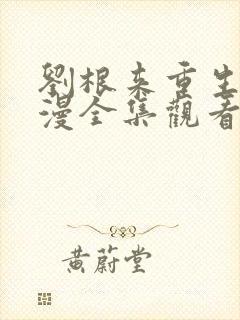 劉根來重生
漫全集觀看
黃蔚堂